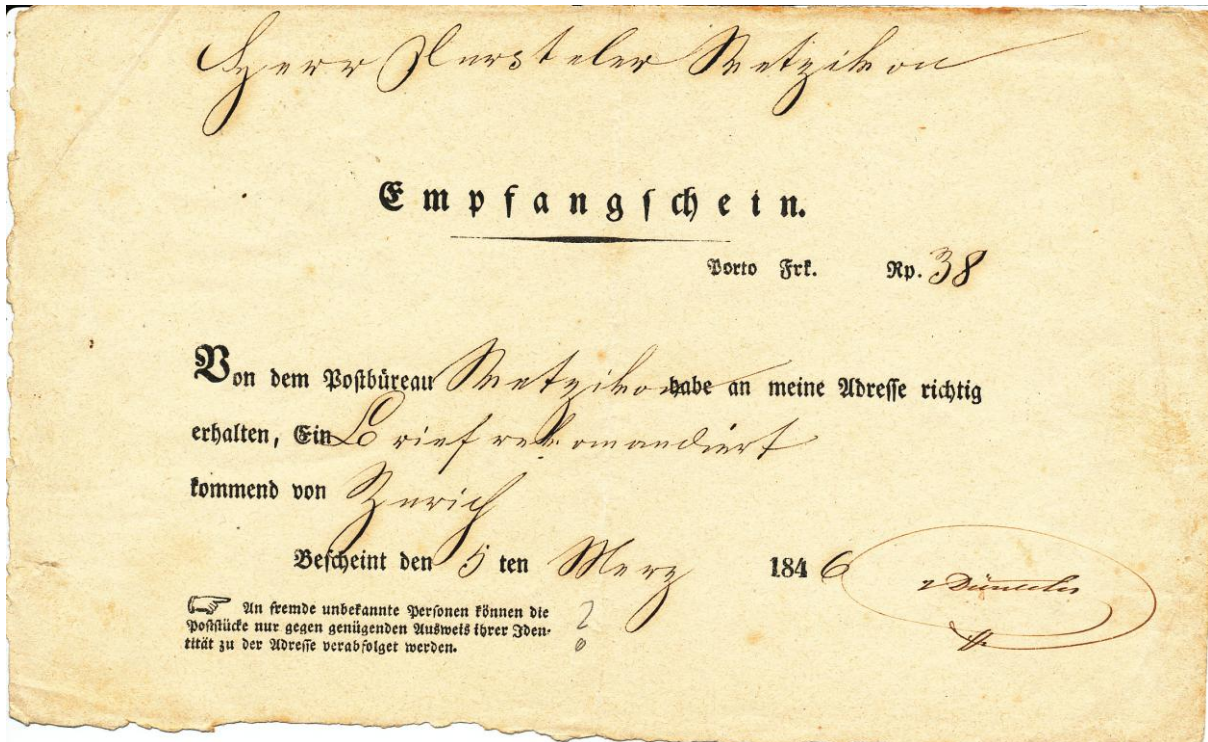 Herr Wetzikon
Empfangschein.
Porto Frk. Rp. 38
Von dem Postbüreau Wetzikon habe an meine Adresse richtig
erhalten, Ein Brief rekomandiert
kommend von Zurich
Bescheint den 5 ten Merz 1846
☞ An fremde unbekannte Personen können die
Poststücke nur gegen genügenden Ausweis ihrer Iden-
tität zu der Adresse verabfolget werden.